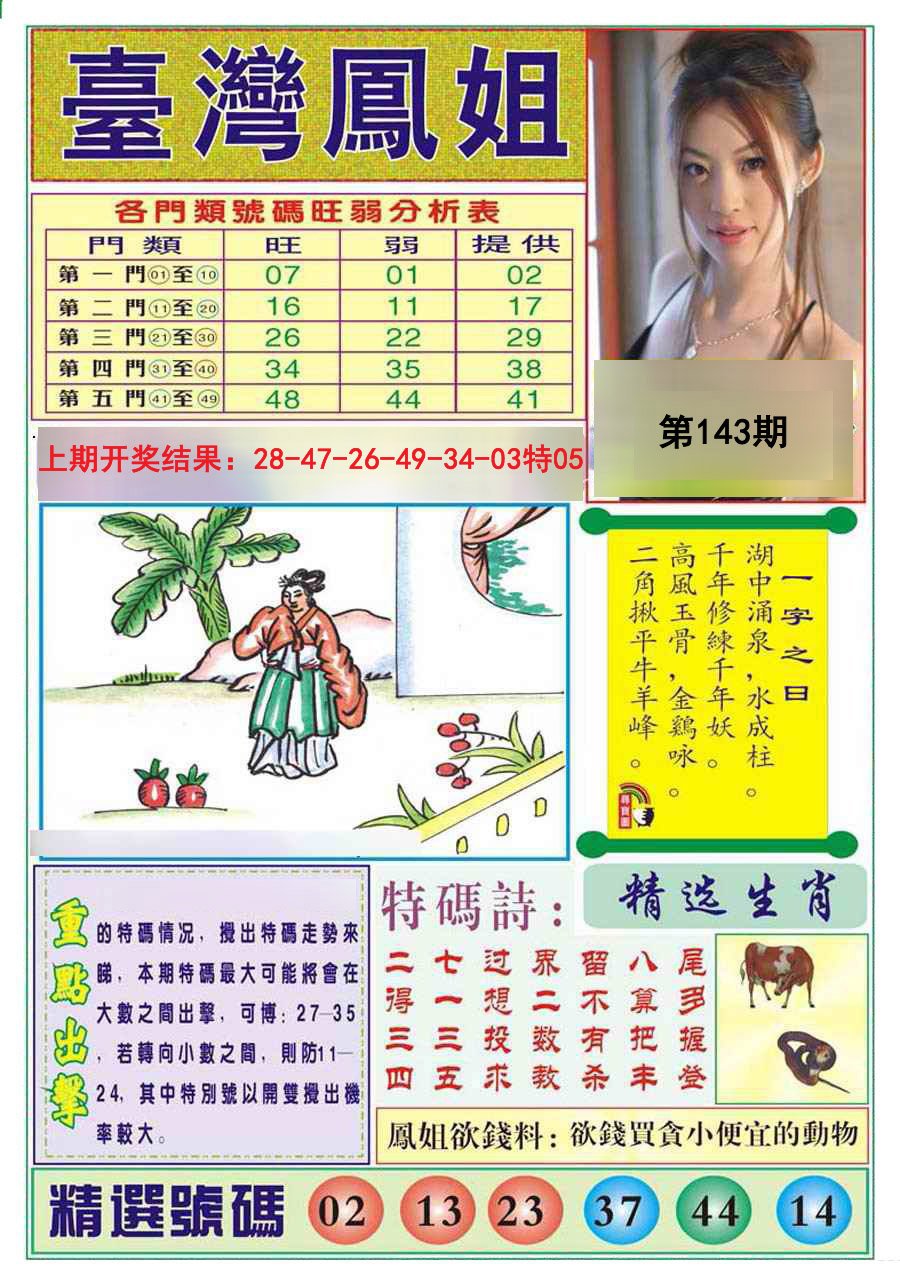 臺灣鳳姐
各門類號碼旺弱分析表
門類 旺 弱 提供
第一門01至10 07 01 02
第二門11至20 16 11 17
第三門21至30 26 22 29
第四門31至40 34 35 38
第五門41至49 48 44 41
第143期
上期开奖结果：28-47-26-49-34-03特05
一字之曰
湖中涌泉，水成柱。
千年修練千年妖。
高風玉骨，金鷄咏。
二角揪平牛羊峰。
尋寶圖
重點出擊
的特碼情況，攪出特碼走勢來
睇，本期特碼最大可能將會在
大數之間出擊，可博：27—35
，若轉向小數之間，則防11—
24，其中特別號以開雙攪出機
率較大。
特碼詩：
二七过界留八尾
得一想二不算多
三三投数有把握
四五求教杀丰登
精选生肖
鳳姐欲錢料：欲錢買貪小便宜的動物
精選號碼 02 13 23 37 44 14